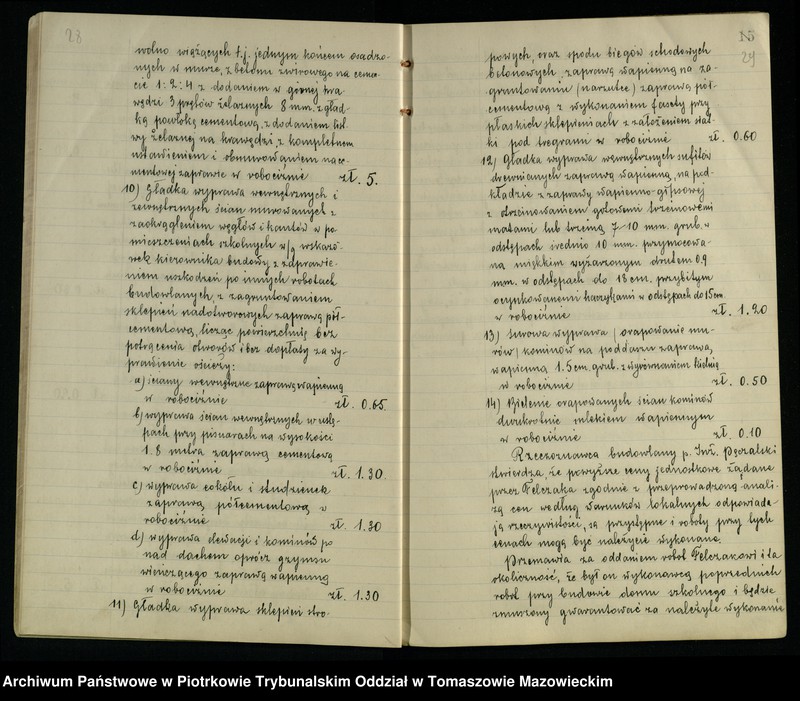 28
wolno wiążących t.j. jednym końcem osadzo-
nych w murze, z betonu żwirowego na cemen-
cie 1:2:4 z dodaniem w górnej kra-
wędzi 3 prętów żelaznych 8 mm. z gład-
ką powłoką cementową, z dodaniem list-
wy żelaznej na krawędzi, z kompletnem
ustawieniem i obmurowaniem na ce-
mentowej zaprawie w robociźnie zł. 5.
10) Gładka wyprawa wewnętrznych i
zewnętrznych ścian murowanych z
zaokrągleniem węgłów i kantów w po
mieszczeniach szkolnych w/g wskazó-
wek kierownika budowy, z zaprawie-
niem uszkodzeń po innych robotach
budowlanych, z zagruntowaniem
sklepień nadotworowych zaprawą pół-
cementową, licząc powierzchnię bez
potrącenia otworów i bez dopłaty za wy-
prawienie ościeży:
a) ściany wewnętrzne zaprawą wapienną
w robociźnie zł. 0.65
b) wyprawa ścian wewnętrznych w ustę-
pach przy pisuarach na wysokości
1.8 metra zaprawą cementową
w robociźnie zł. 1.30
c) wyprawa cokółu i studzienek
zaprawą półcementową w
robociźnie zł. 1.30
d) wyprawa elewacji i kominów po
nad dachem oprócz gzymsu
wieńczącego zaprawą wapienną
w robociźnie zł. 1.30
11) Gładka wyprawa sklepień stro-
15
29
powych, oraz spodu biegów schodowych
betonowych, zaprawą wapienną na za-
gruntowaniu (narzutce) zaprawą pół-
cementową z wykonaniem fasety przy
płaskich sklepieniach z założeniem siat-
ki pod tregrami w robociźnie zł. 0.60
12) Gładka wyprawa wewnętrznych sufitów
drewnianych zaprawą wapienną, na pod-
kładzie z zaprawy wapienno-gipsowej
z otrzcinowaniem gotowemi trzcinowemi
matami lub trzciną 7-10 mm. grub. w
odstępach średnio 10 mm. przymocowa-
na miękkim wyżarzonym drutem 0.9
mm. w odstępach do 18 cm. przybitym
ocynkowanemi haczykami w odstępach do 15 cm.
w robociźnie zł. 1.20
13) Surowa wyprawa / orapowanie mu-
rów / kominów na poddaszu zaprawą,
wapienną 1.5 cm. grub. z wyrównaniem kielnią
w robociźnie zł. 0.50
14) Bielenie orapowanych ścian kominów
dwukrotnie mlekiem wapiennym
w robociźnie zł. 0.10
Rzeczoznawca budowlany p. Inż. Pęczalski
stwierdza, że powyższe ceny jednostkowe żądane
przez Felczaka zgodnie z przeprowadzoną anali-
zą cen według warunków lokalnych odpowiada-
ją rzeczywistości, są przystępne i roboty przy tych
cenach mogą być należycie wykonane.
Przemawia za oddaniem robót Felczakowi i ta
okoliczność, że był on wykonawcą poprzednich
robót przy budowie domu szkolnego i będzie
zmuszony gwarantować za należyte wykonanie
Archiwum Państwowe w Piotrkowie Trybunalskim Oddział w Tomaszowie Mazowieckim